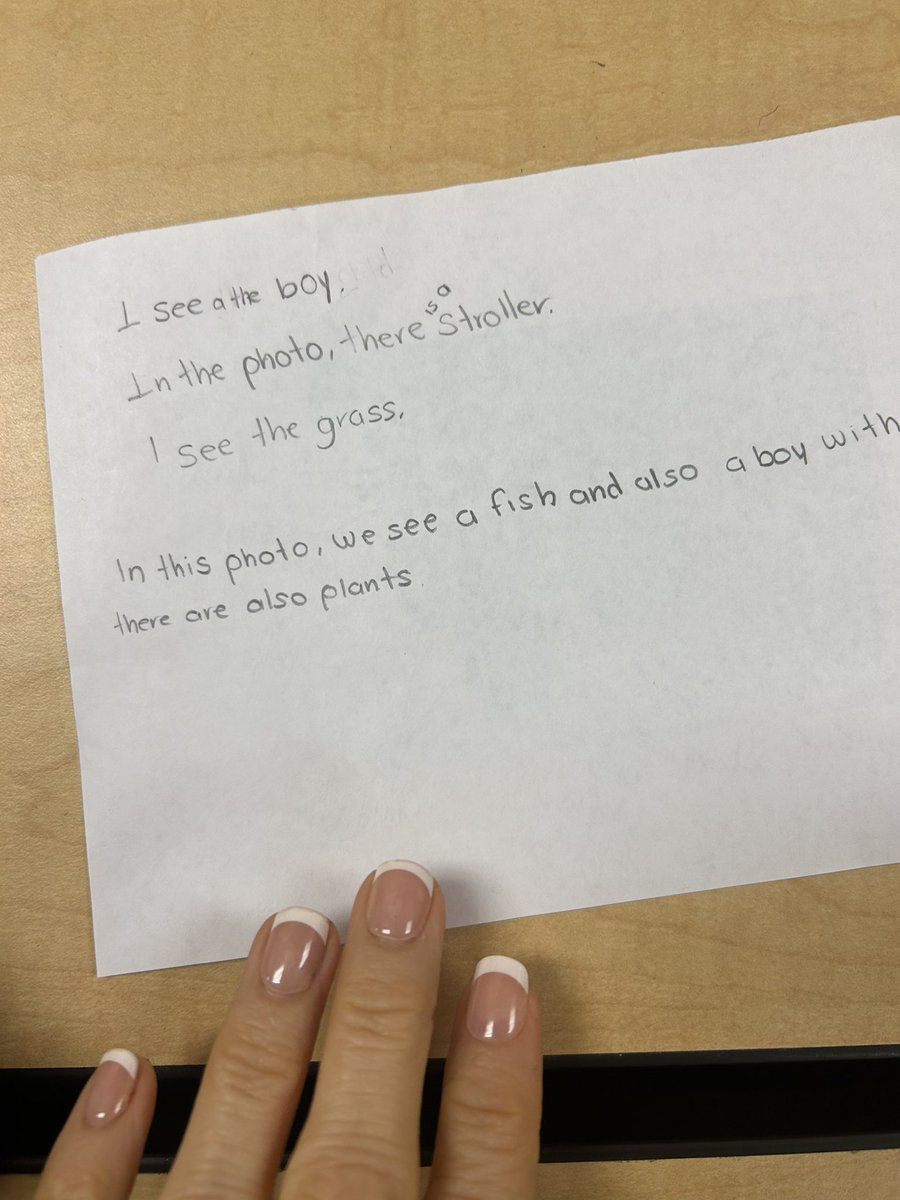 I see a the boy.
In the photo, there's a stroller.
I see the grass.
In this photo, we see a fish and also a boy with
there are also plants.